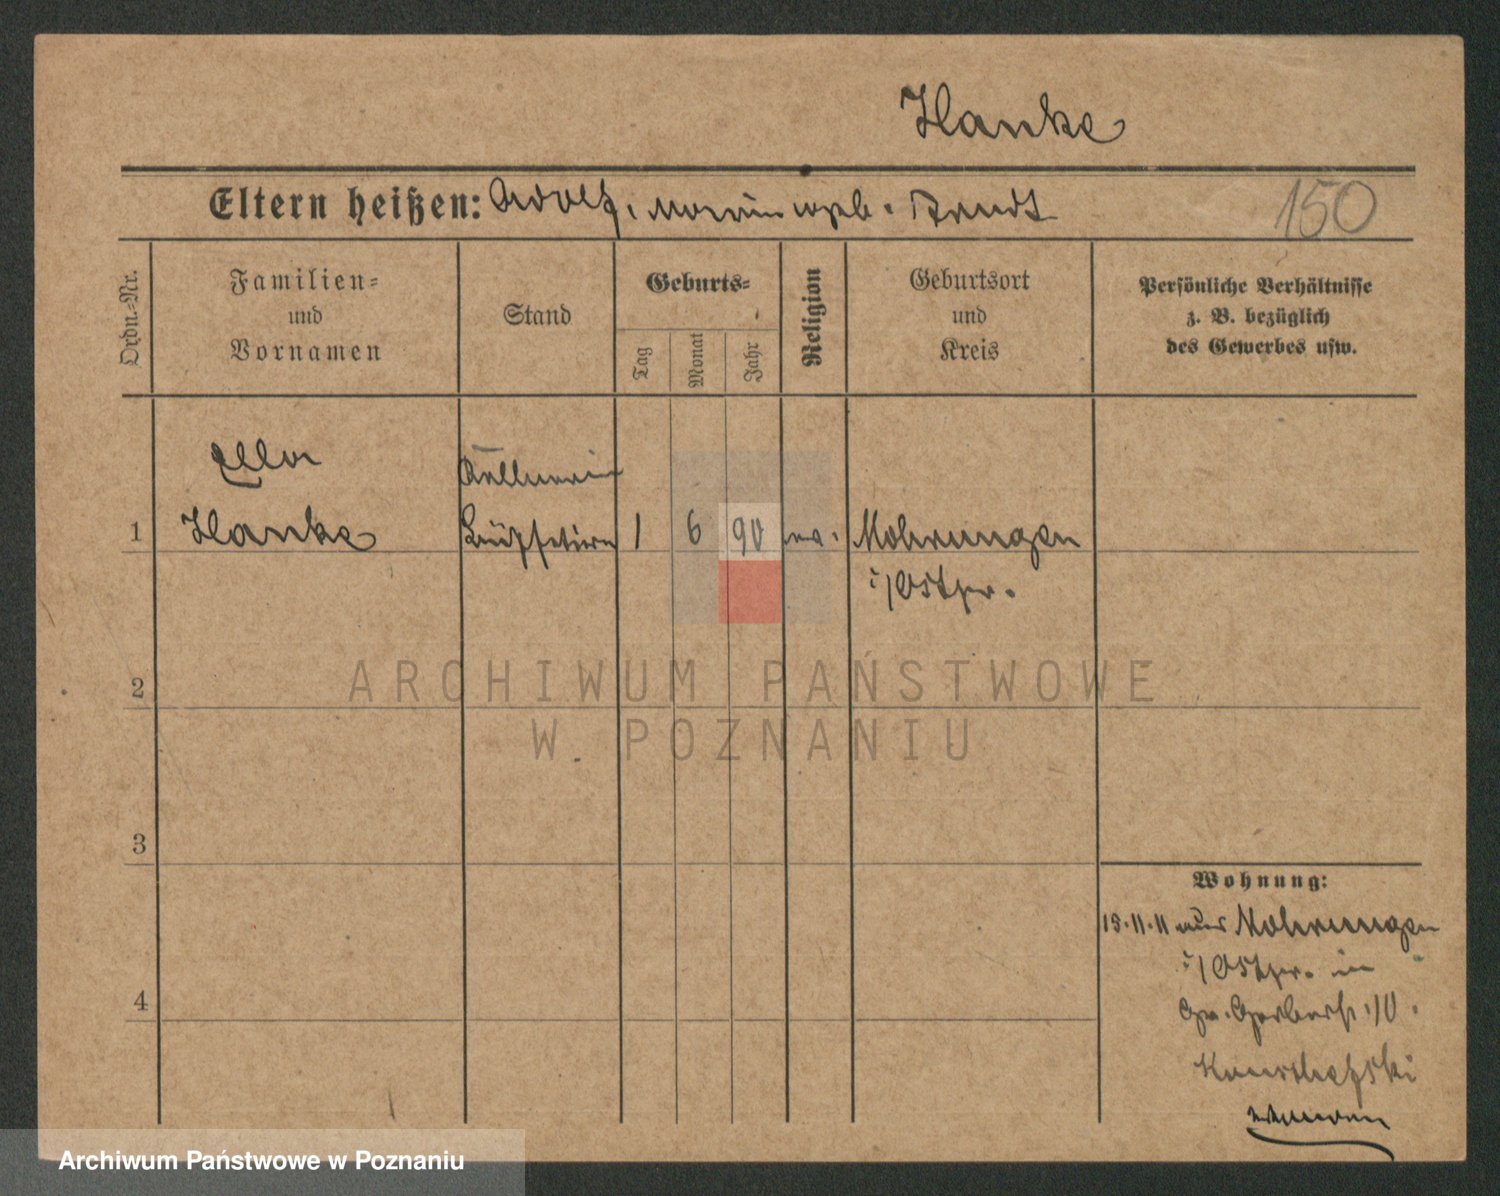 Hanke
Eltern heißen: Adolf, u. Maria geb. Arndt
150
Ordn.-Nr.
Familien-
und
Vornamen
Stand
Geburts-
Tag
Monat
Jahr
Religion
Geburtsort
und
Kreis
Persönliche Verhältnisse
z. B. bezüglich
des Gewerbes usw.
Ella
Kellnerin
1 Hanke 1 6 90 ev. Mohrungen
i/Ostpr.
2
ARCHIWUM PAŃSTWOWE
W POZNANIU
3
Wohnung:
15.11.11 aus Mohrungen
i/Ostpr. in
4
Gr. Gerberst. 10.
Archiwum Państwowe w Poznaniu